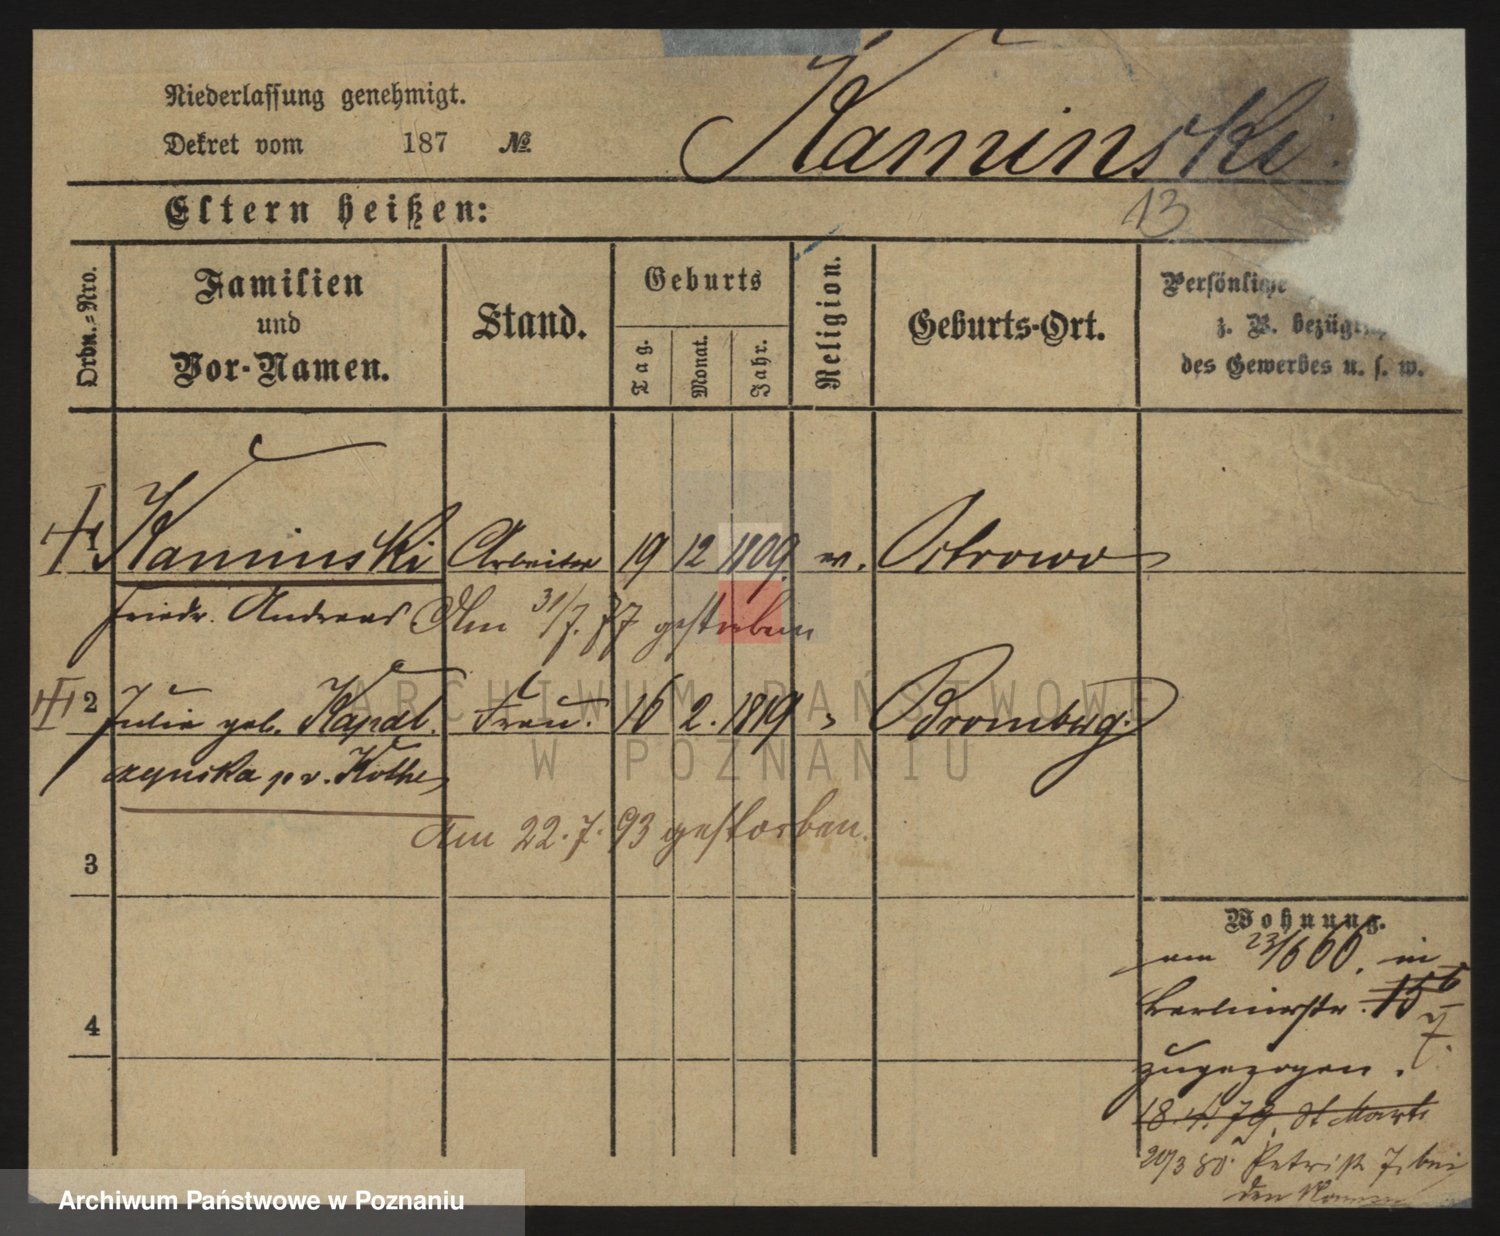 Niederlassung genehmigt.
Dekret vom 187 №
Kaminski
13
Eltern heißen:
Ordn.-Nro.
Familien
und
Vor-Namen.
Stand.
Geburts
Tag.
Monat.
Jahr.
Religion.
Geburts-Ort.
Persönliche
z. B. bezügl
des Gewerbes u. s. w.
1 Kaminski Arbeiter 19 12 1809. ev. Ostrowo
Friedr. Andreas Am 31/7. 77 gestorben
2 Julie geb. Kapal Frau. 16 2. 1819 Bromberg.
czynska pr. Kothe
Am 22.7.93 gestorben.
3
4
Wohnung.
am 23/6 66. in
Berlinerstr. 15
7.
zugezogen.
18. 79. St Mart
20/3 80. Petristr 7. bei
den
ARCHIWUM PAŃSTWOWE
W POZNANIU
Archiwum Państwowe w Poznaniu